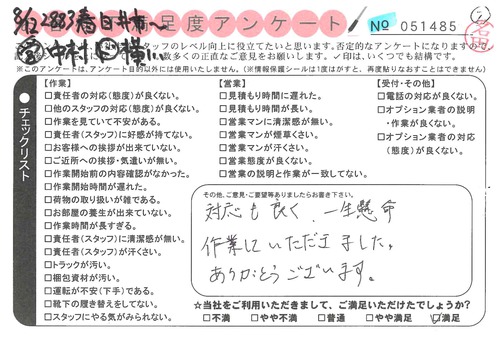 満足度アンケート
No 051485
スタッフのレベル向上に役立てたいと思います。否定的なアンケートになりますので
数多くの正直なご意見をお願いします。✓印は、いくつでも結構です。
※このアンケートは、アンケート目的以外には使用いたしません。(※情報保護シールは1度はがすと、再度貼りなおすことはできません)
チェックリスト
【作業】
□責任者の対応(態度)が良くない。
□他のスタッフの対応(態度)が良くない。
□作業を見ていて不安がある。
□責任者(スタッフ)に好感が持てない。
□お客様への挨拶が出来ていない。
□ご近所への挨拶・気遣いが無い。
□作業開始前の内容確認がなかった。
□作業開始時間が遅れた。
□荷物の取り扱いが雑である。
□お部屋の養生が出来ていない。
□作業時間が長すぎる。
□責任者(スタッフ)に清潔感が無い。
□責任者(スタッフ)が汗くさい。
□トラックが汚い。
□梱包資材が汚い。
□運転が不安(下手)である。
□靴下の履き替えをしてない。
□スタッフにやる気がみられない。
【営業】
□見積もり時間に遅れた。
□見積もり時間が長い。
□営業マンに清潔感が無い。
□営業マンが煙草くさい。
□営業マンが汗くさい。
□営業態度が良くない。
□営業の説明と作業が一致してない。
【受付・その他】
□電話の対応が良くない。
□オプション業者の説明
・作業が良くない。
□オプション業者の対応
(態度)が良くない。
その他、ご意見・ご要望等ありましたらお書き下さい。
対応も良く、一生懸命
作業していただきました。
ありがとうございます。
☆当社をご利用いただきまして、ご満足いただけたでしょうか?
□不満 □やや不満 □普通 □やや満足 ☑満足